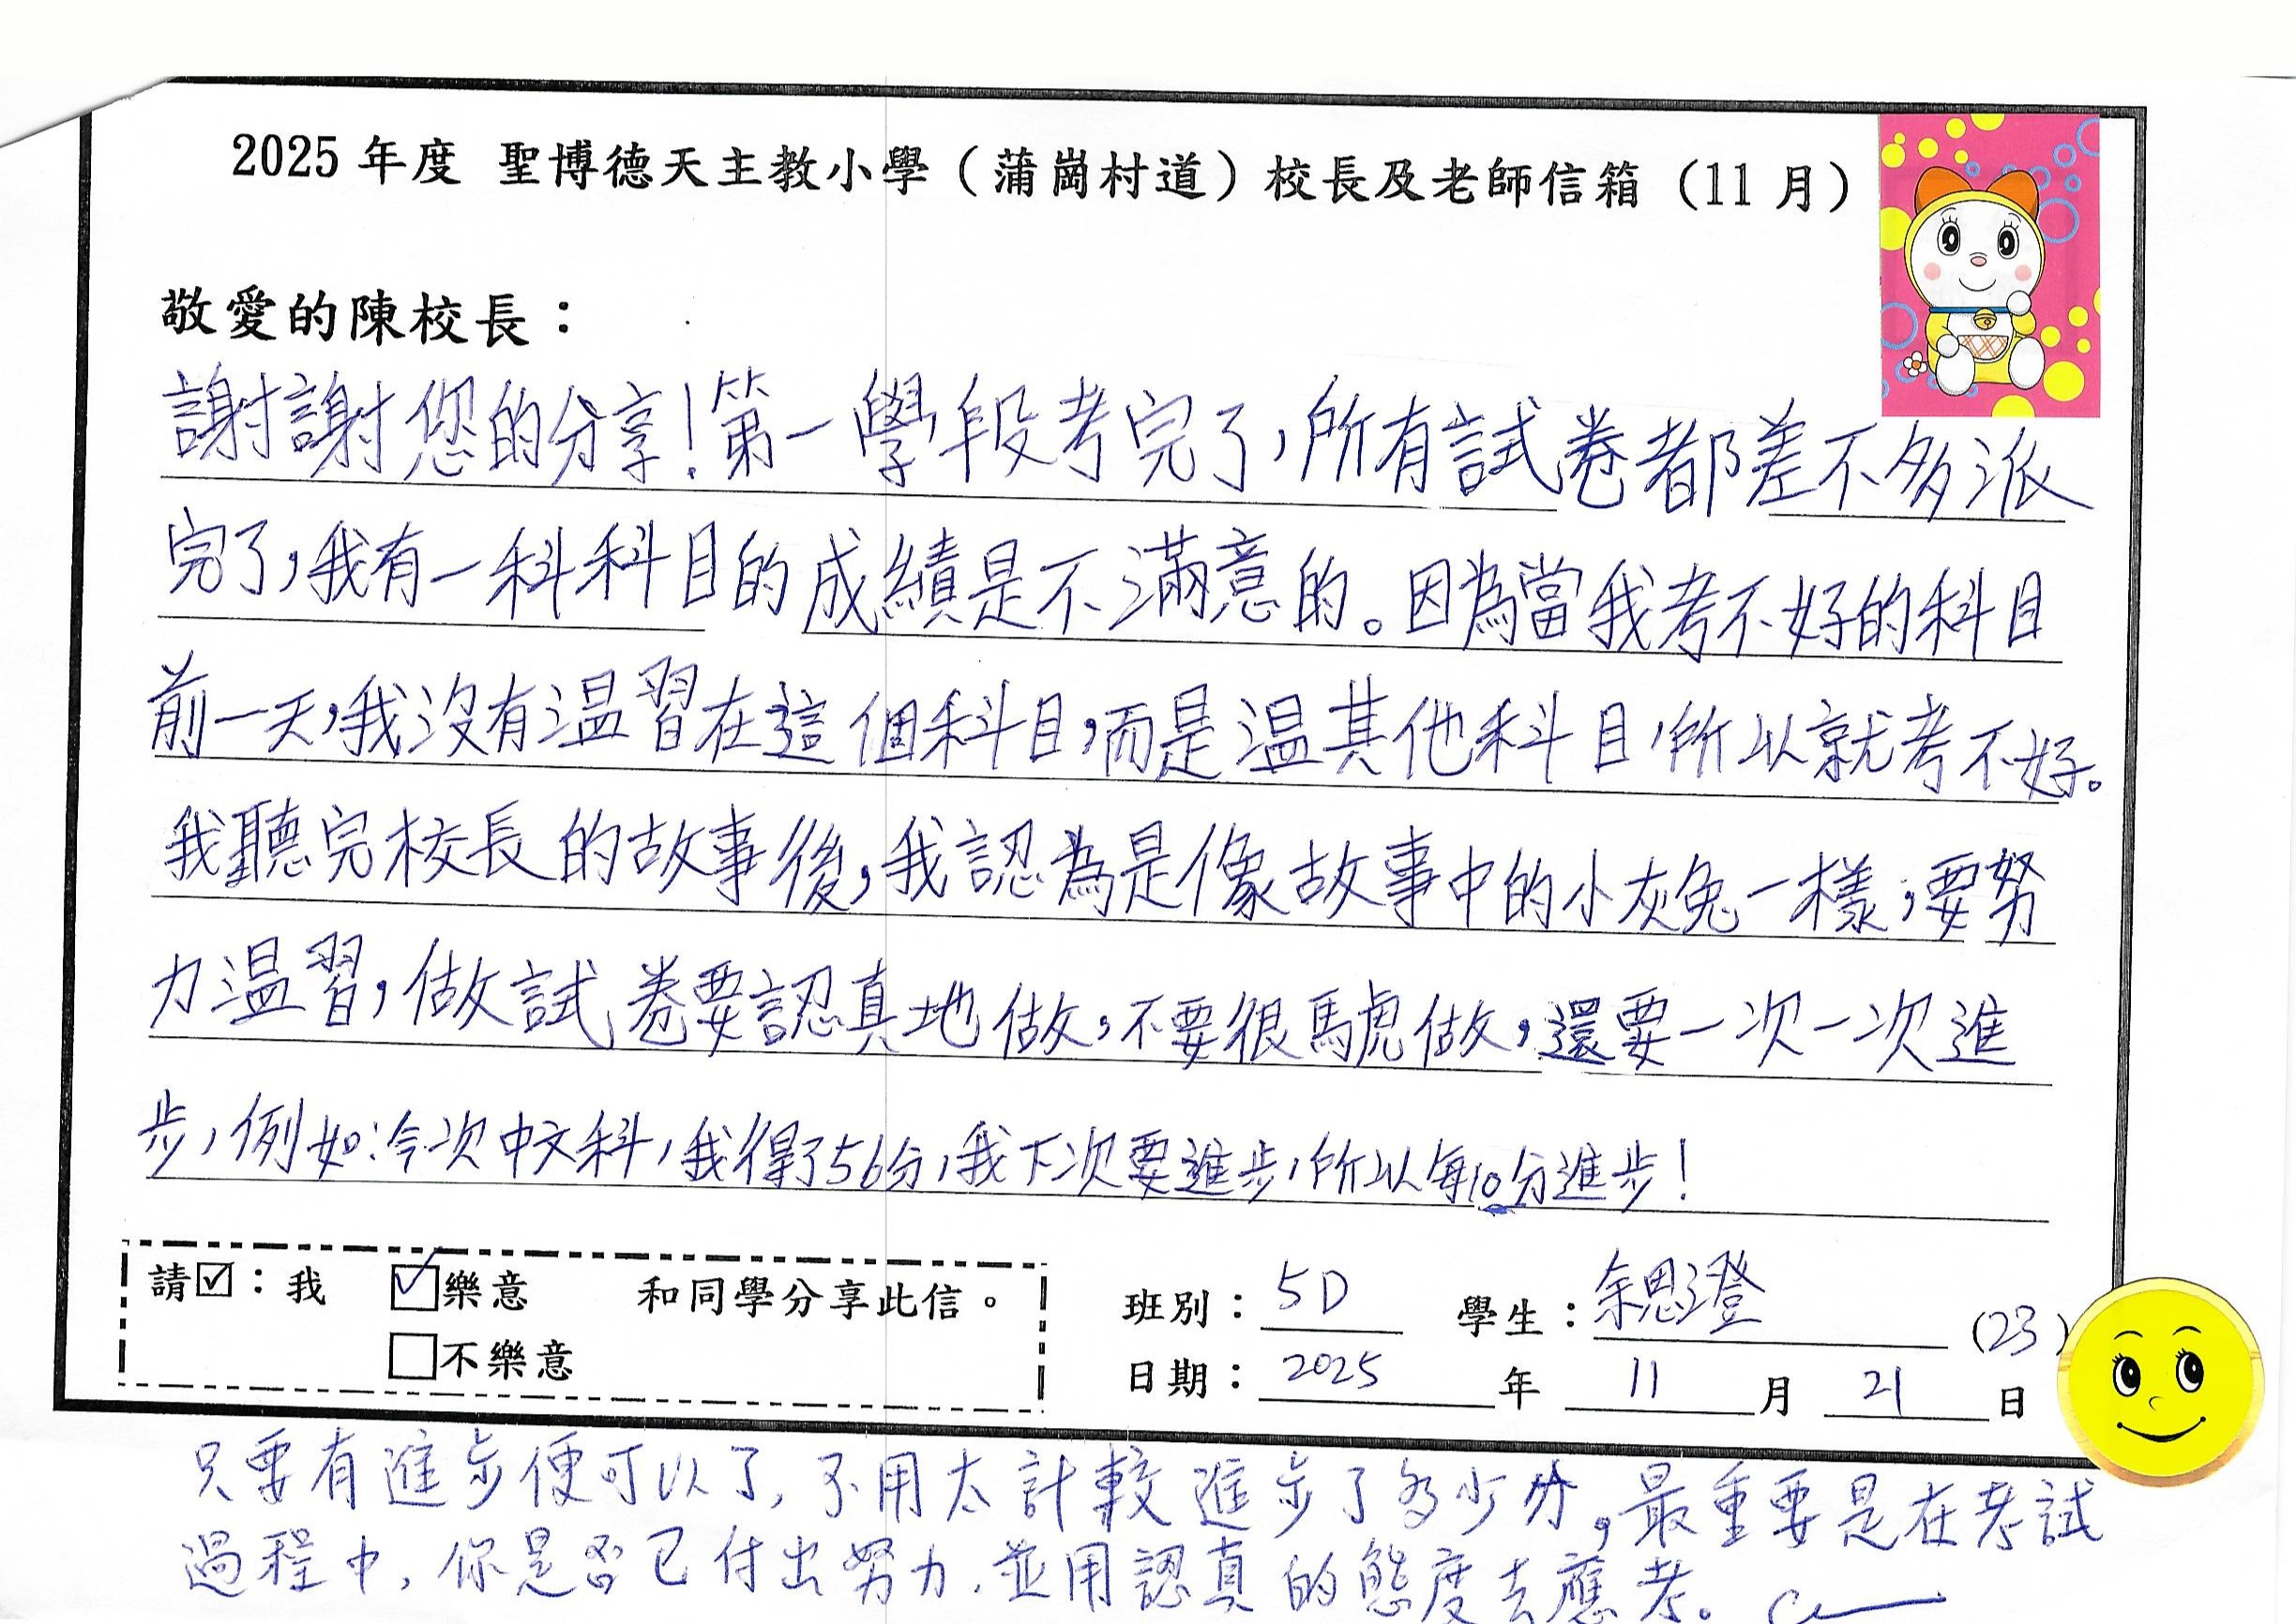 2025 年度 聖博德天主教小學（蒲崗村道）校長及老師信箱（11 月）
敬愛的陳校長：
謝謝您的分享！第一學段考完了，所有試卷都差不多派
完了，我有一科科目的成績是不滿意的。因為當我考不好的科目
前一天，我沒有溫習在這個科目，而是溫其他科目，所以就考不好。
我聽完校長的故事後，我認為是像故事中的小灰兔一樣，要努
力溫習，做試卷要認真地做，不要很馬虎做，還要一次一次進
步，例如：今次中文科，我得了56分，我下次要進步，所以每10分進步！
請☑：我 ☑樂意 和同學分享此信。
☐不樂意
班別：5D 學生：余思澄 (23)
日期：2025 年 11 月 21 日
只要有進步便可以了，不用太計較進步了多少分，最重要是在考試
過程中，你是否已付出努力，並用認真的態度去應考。